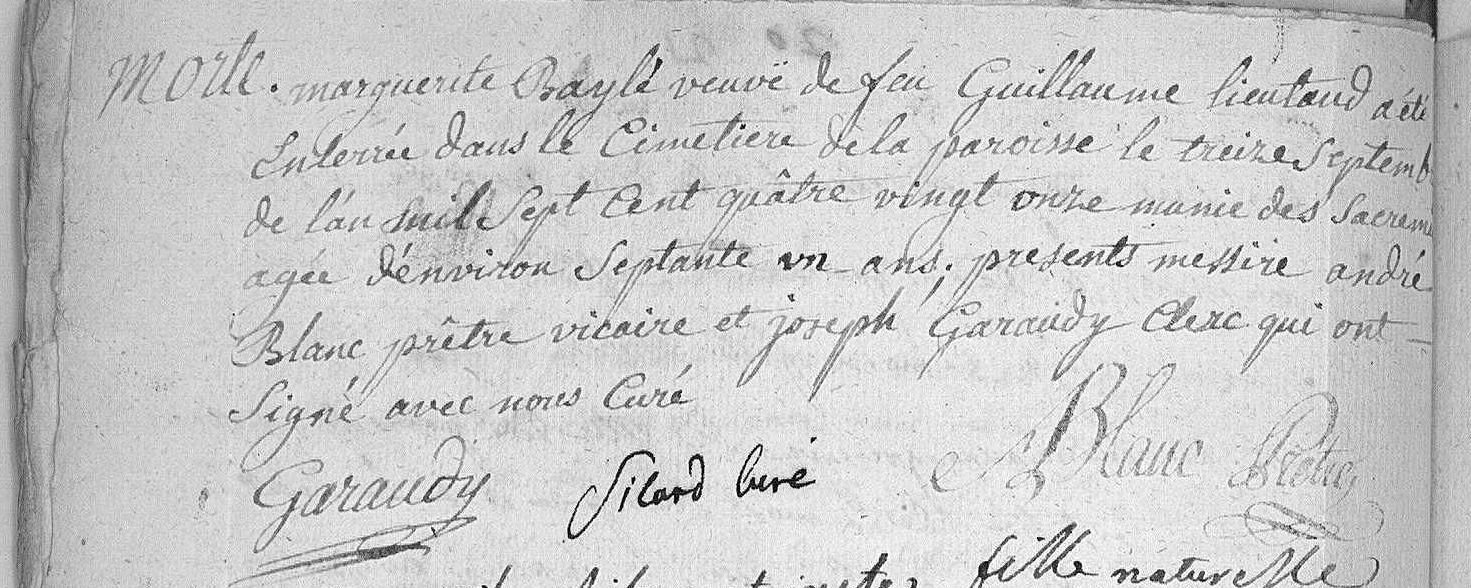 Morte. marguerite Baylé veuvë de feu Guillaume lieutaud a été
Enterrée dans le Cimetiere de la paroisse le treize Septemb
de l'an mil Sept Cent quâtre vingt onze munie des Sacrem
agée d'énviron Septante un ans; presents messire andré
Blanc prêtre vicaire et joseph Garaudy Clerc qui ont
Signé avec nous Curé
Garaudy Sicard Curé Blanc Prêtre
fille naturelle